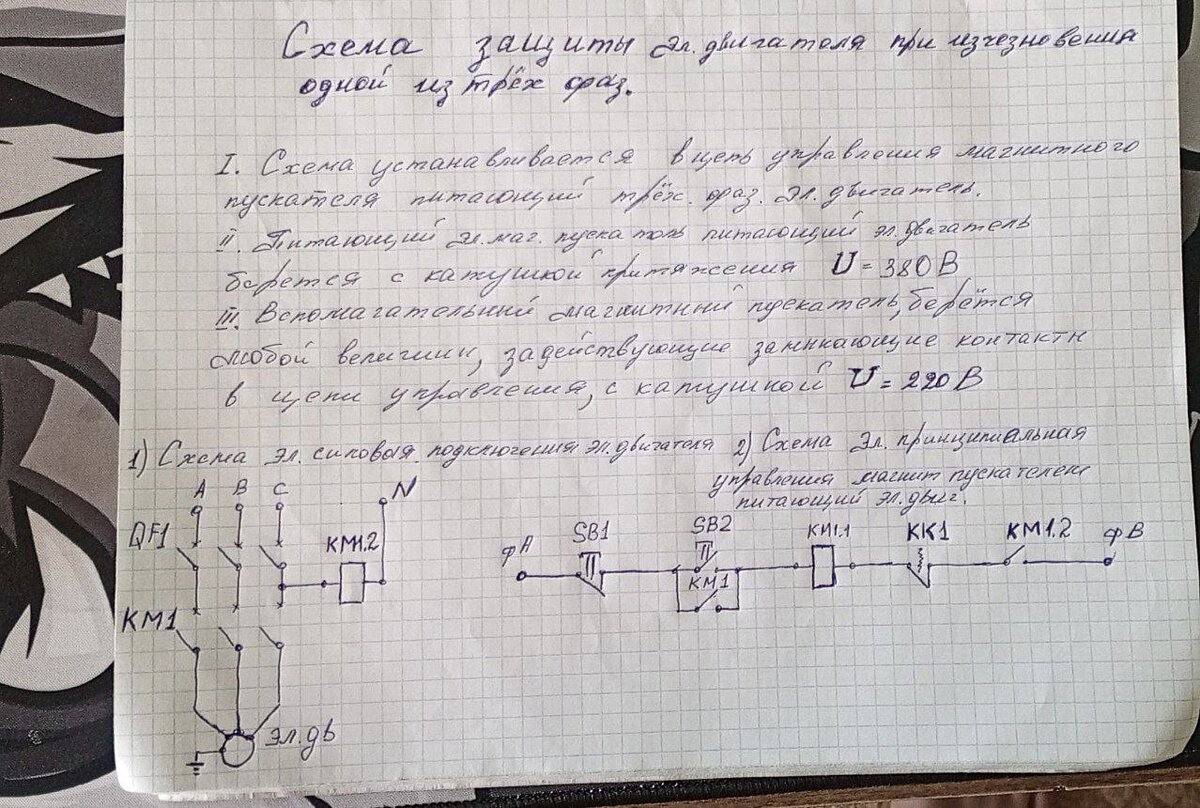 Схема защиты эл. двигателя при изчезновения
одной из трёх фаз.
I. Схема устанавливается в цепь управления магнитного
пускателя питающий трёх. фаз. эл. двигатель.
II. Питающий эл. маг. пускатель питающий эл. двигатель
берется с катушкой притяжения U = 380 В
III. Вспомагательный магнитный пускатель, берётся
любой величин, задействующие замыкающие контакты
в цепи управления, с катушкой U = 220 В
1) Схема эл. силовыя подключения эл. двигателя
2) Схема эл. принципиальная
управления магнит пускателем
питающий эл. двиг.
A B C N
QF1
КМ1.2
КМ1
эл. дв
фА SB1 SB2 КМ1.1 КК1 КМ1.2 фВ
КМ1